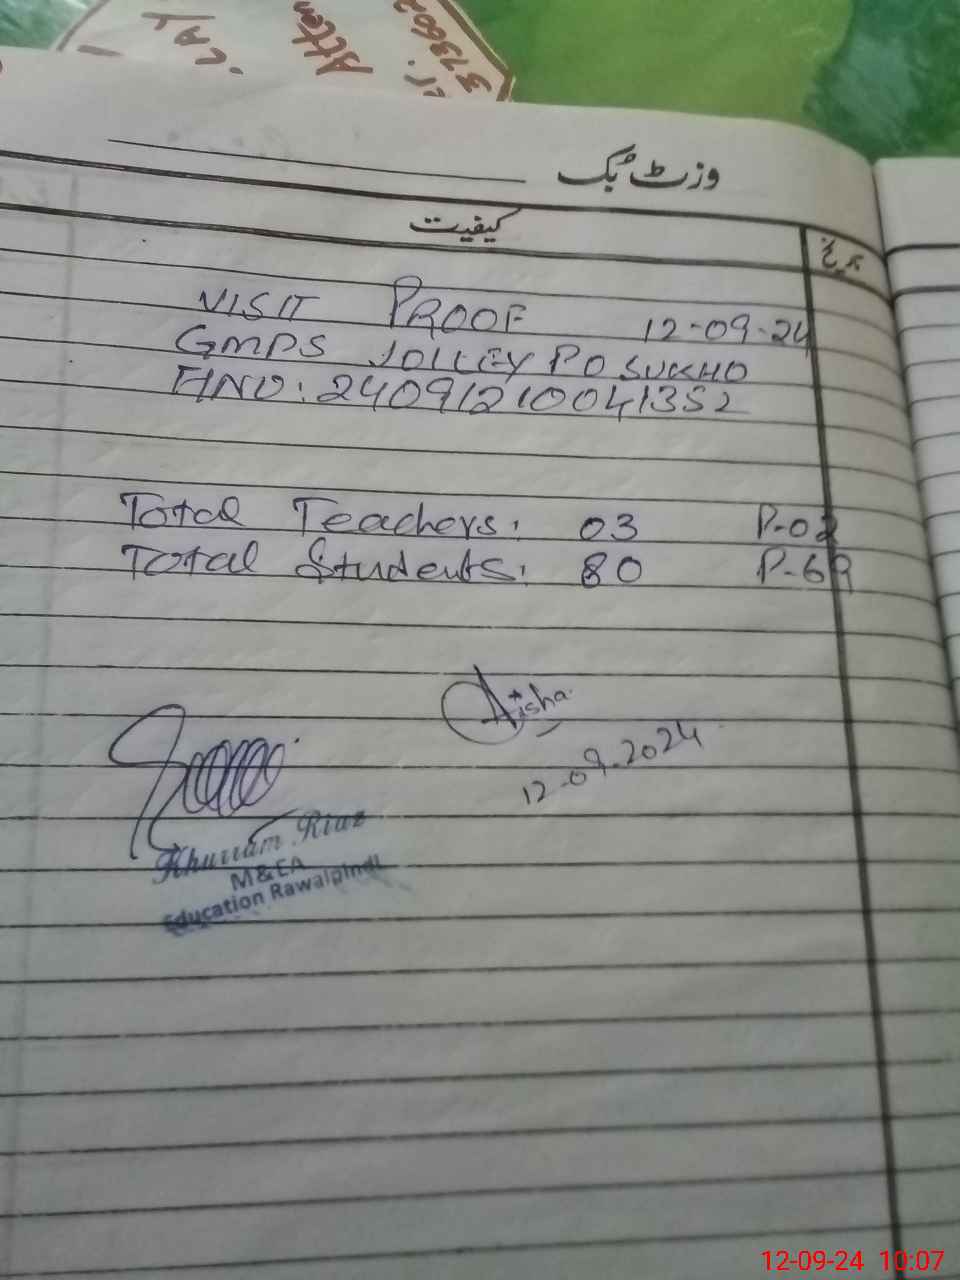 وزٹ بُک
کیفیت
تاریخ
VISIT PROOF 12-09-24
GMPS JOLLEY PO SUKHO
FINO: 24091210041352
Total Teachers: 03 P-02
Total Students: 80 P-69
Aisha
12-09-2024
Khurram Riaz
M&EA
Education Rawalpindi
12-09-24 10:07